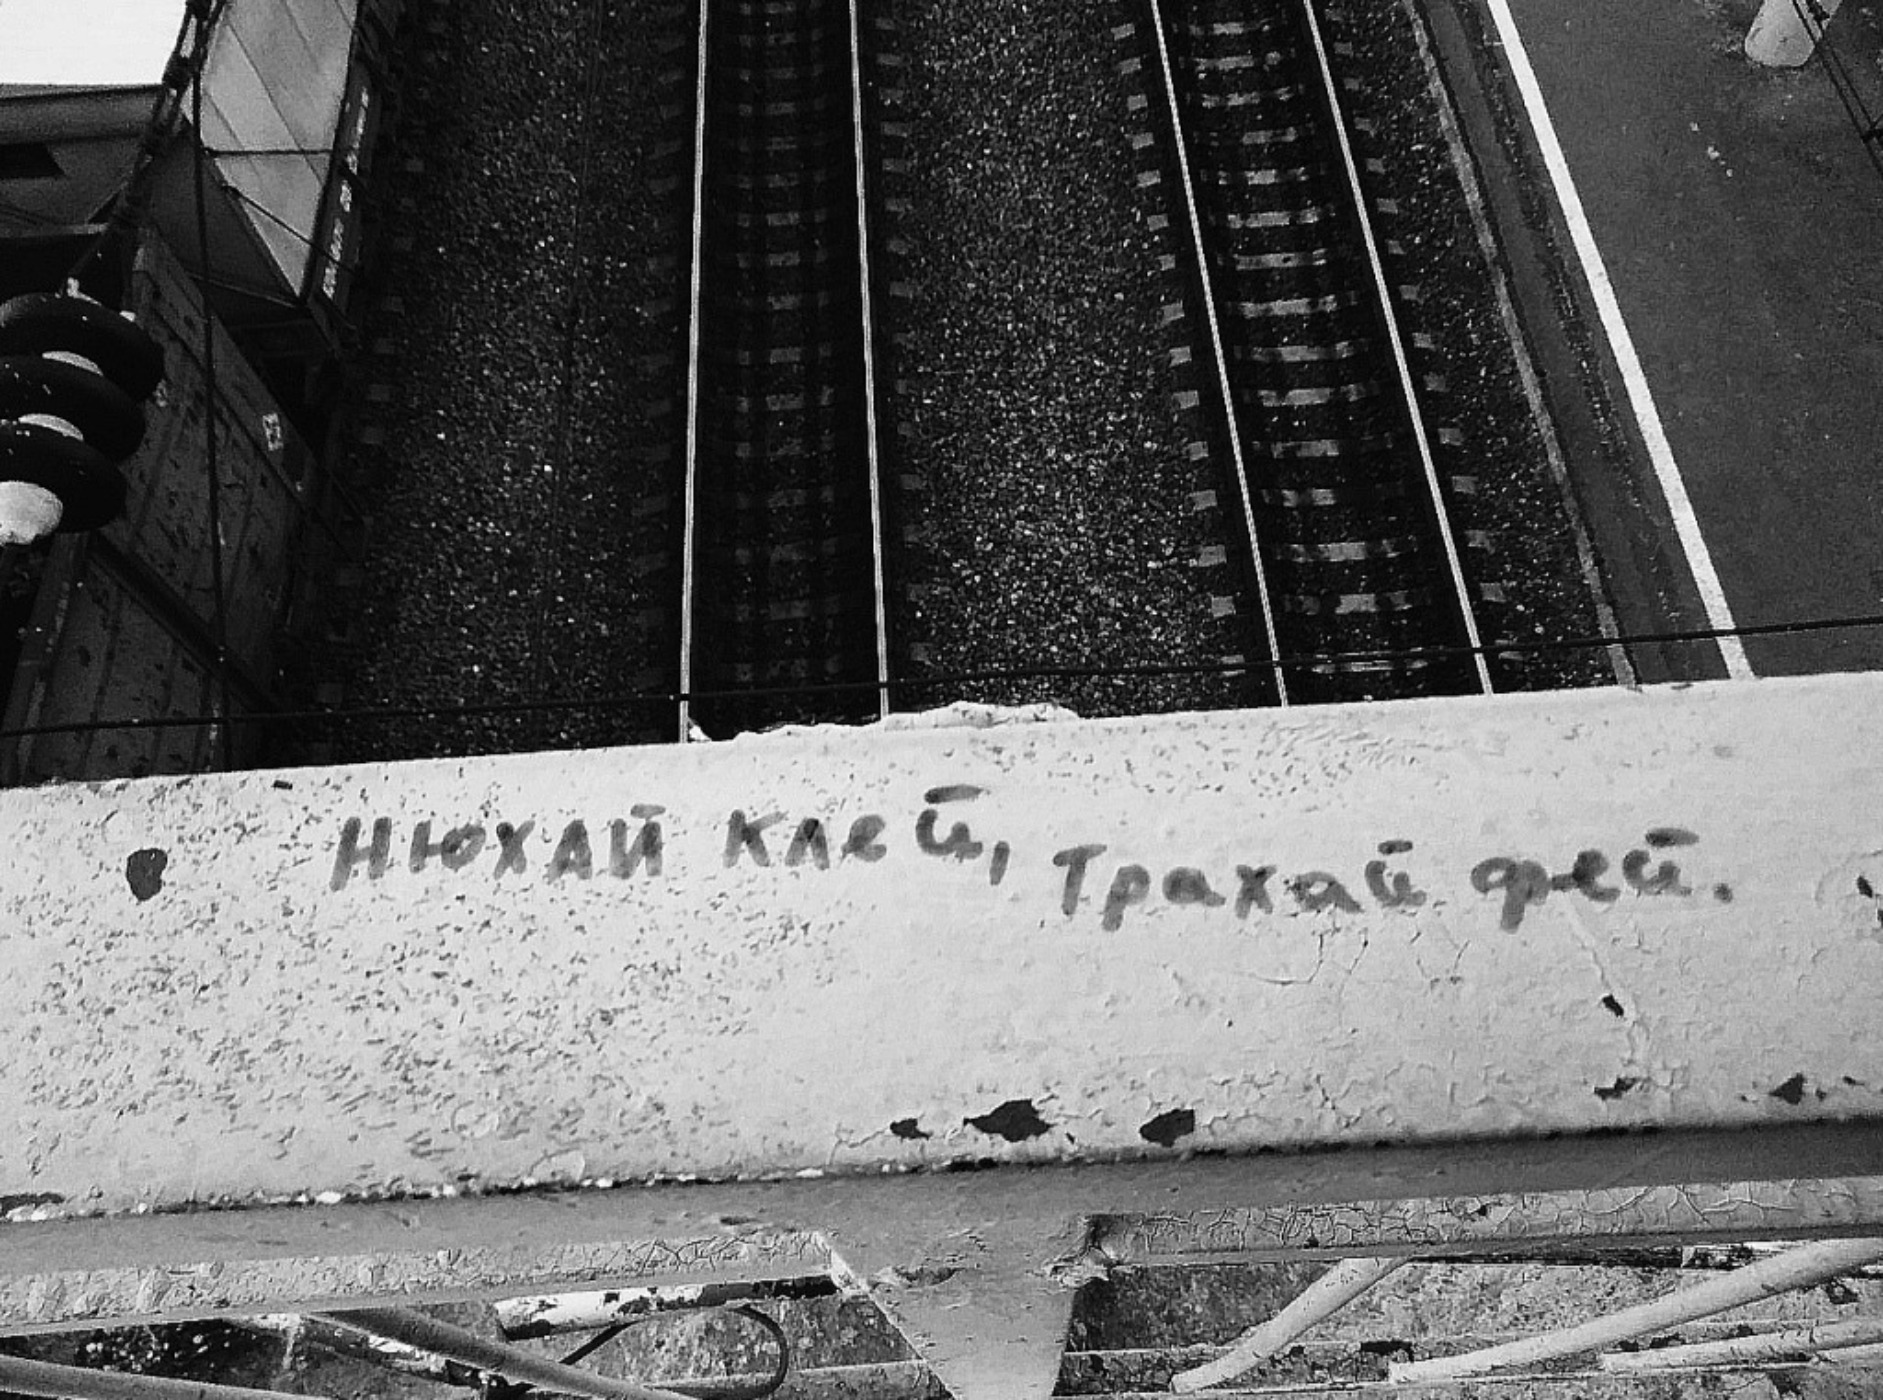 Нюхай клей, трахай фей.